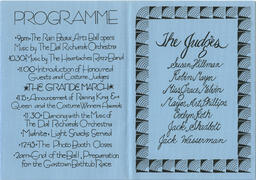 PROGRAMME
•9pm•The Rain Beaux Arts Ball opens
Music by The Dal Richards Orchestra
10:30 Music by The Heartaches Razz Band
•11:00•Introduction of Honoured
Guests and Costume Judges
★THE GRANDE MARCH★
11:15•Announcement of Reigning King &
Queen and the Costume Winners Awards
•11:30•Dancing with the Music of
The Dal Richards Orchestra
•Midnite• Light Snacks Served
•12:45•The Photo Booth Closes
•2am•End of the Ball, Preparation
for the Gastown Bathtub Race
The Judges
Susan Hillman
Robin Mayor
Max Grace
Mayor
Phillips
Evelyn Roth
Jack Shadbolt
Jack Wasserman